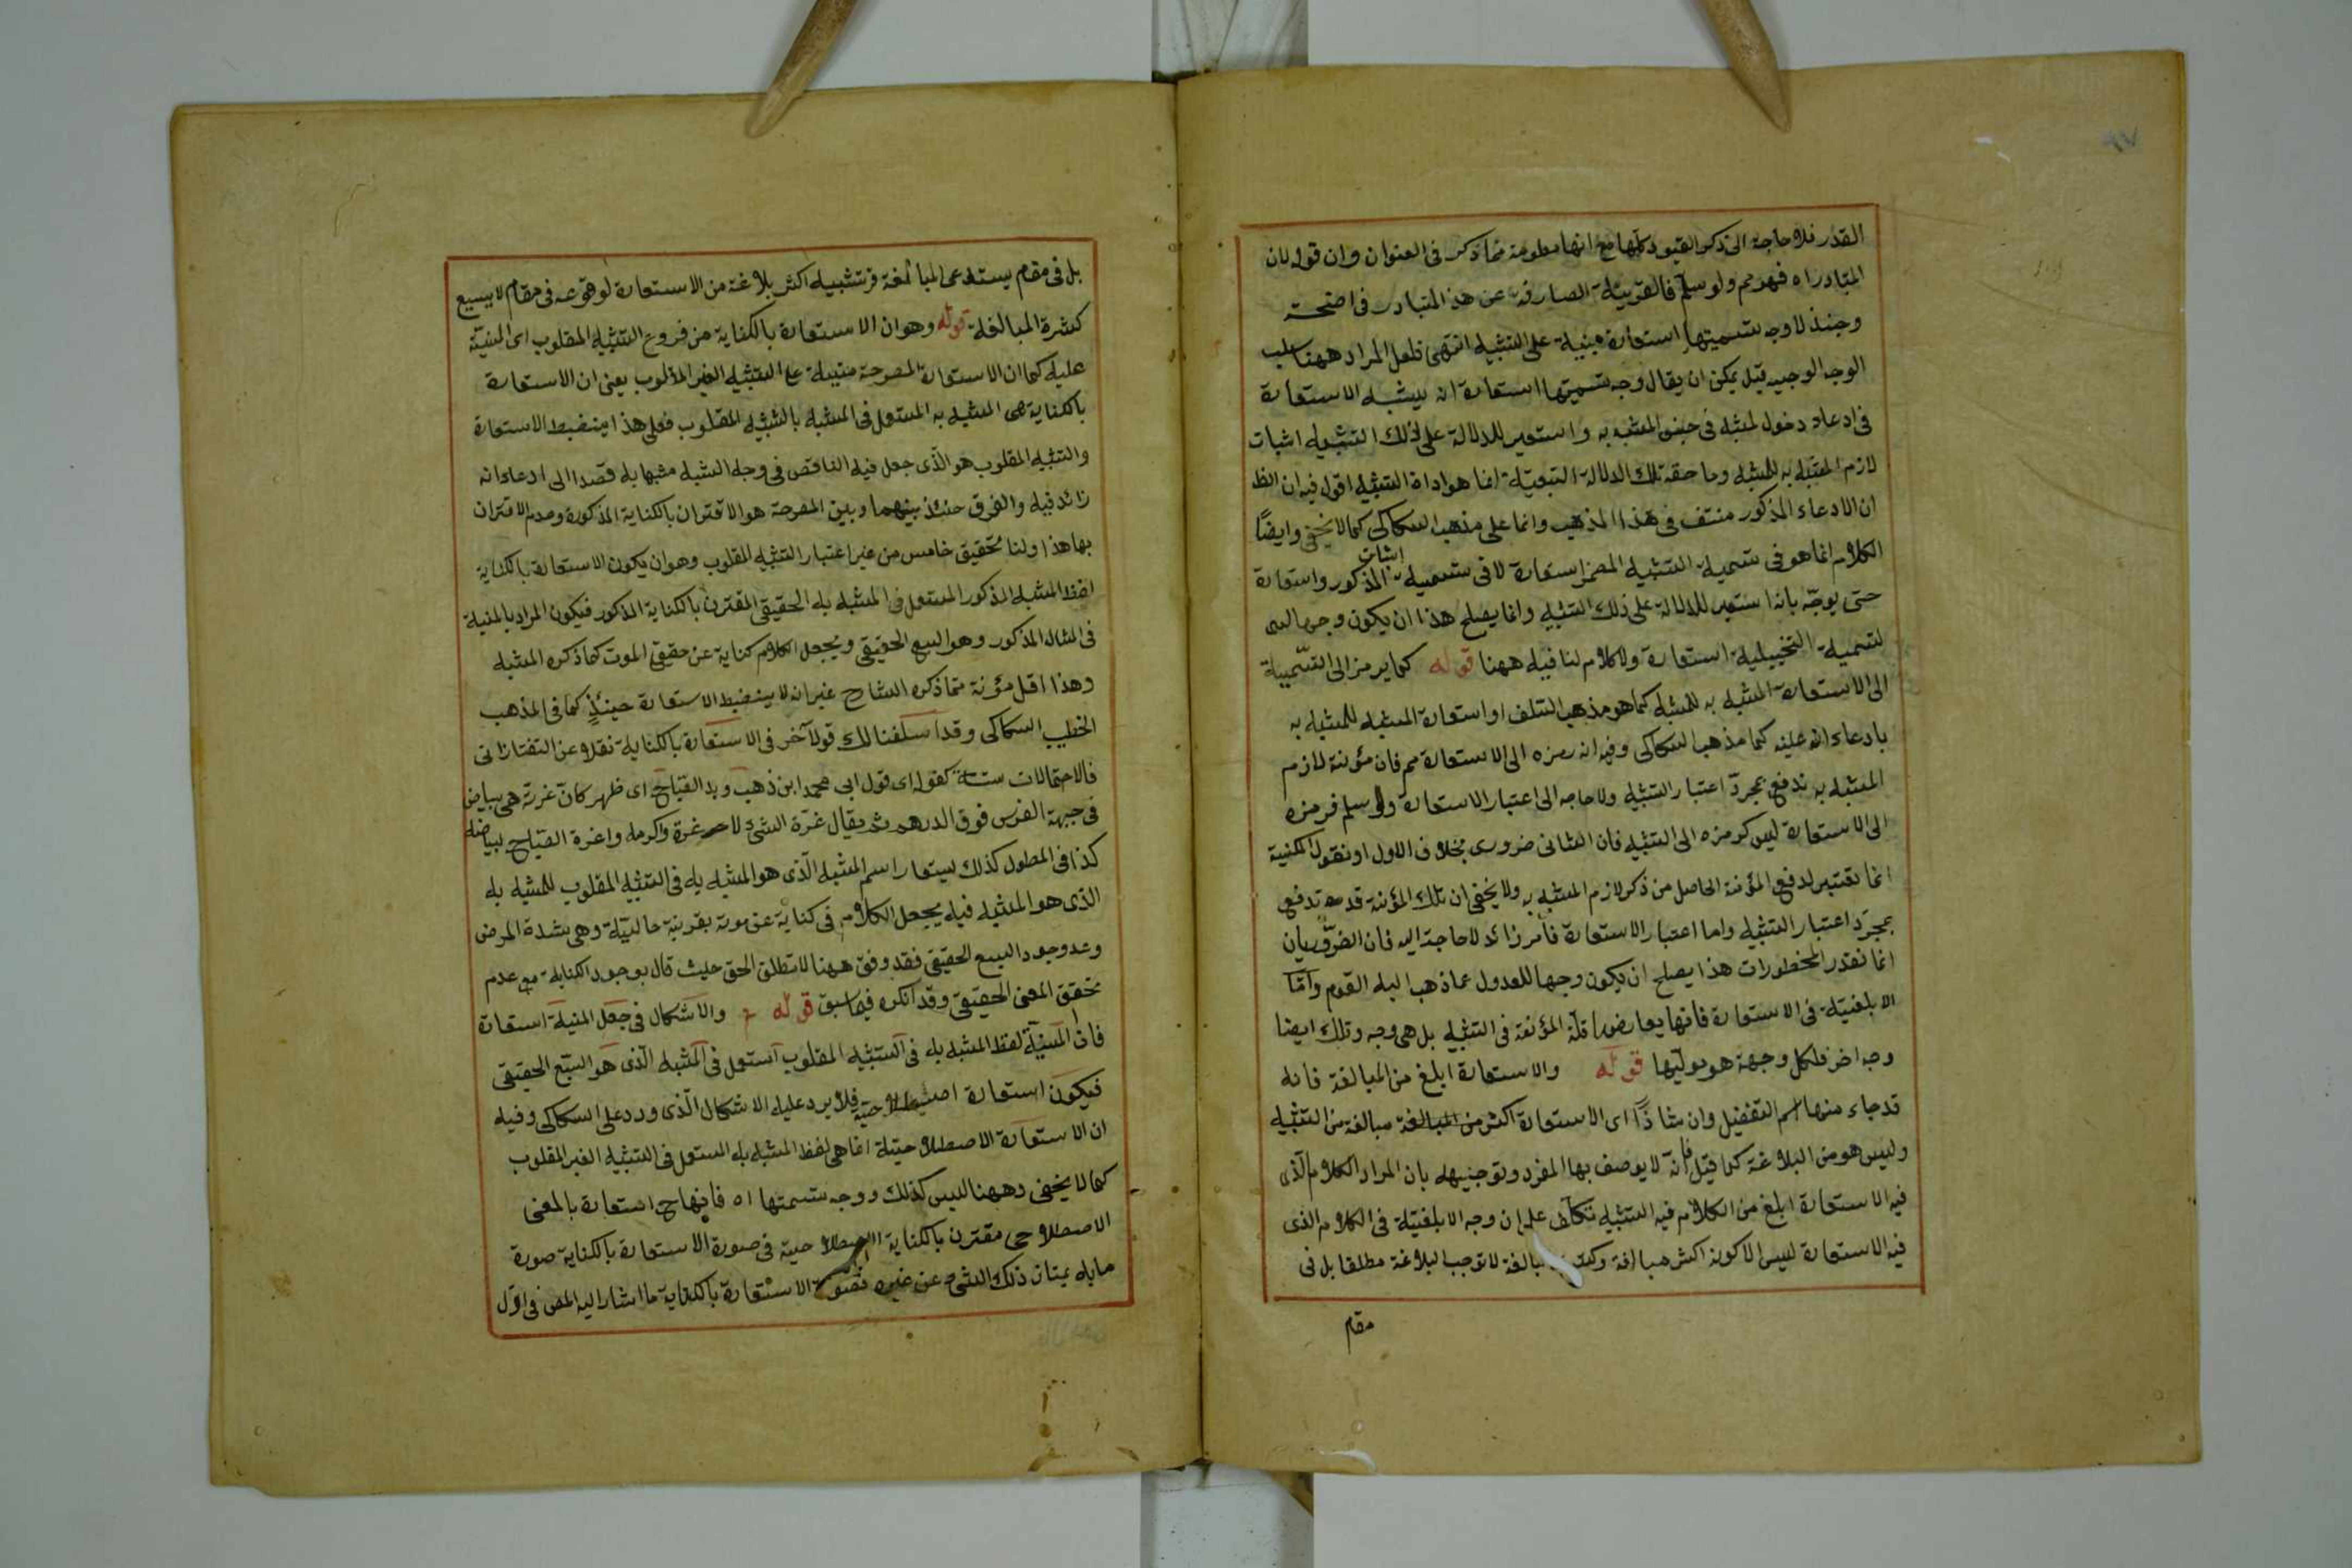 القدر فلا حاجة الى ذكر القيود كلها مع انها معلومة مما ذكر فى العنوان وان قوله لان
المتبادر اه فهو مم ولو سلم فالقرينة الصارفة عن هذ المتبادر فى اضحة
وحينئذ لا وجه لتسميتها استعارة مبنية على التشبيه انتهى فلعل المراد ههنا سلب
الوجه الوجيه قيل يمكن ان يقال وجه تسميتها استعارة انه يشبه الاستعارة
فى ادعاء دخول المشبه فى جنس المشبه به واستعير للدلالة على ذلك التشبيه اثبات
لازم المشبه به للمشبه وما حقه تلك الدلالة التبعية انما هو اداة التشبيه اقول فيه ان الظ
ان الادعاء المذكور منتف فى هذا المذهب وانما على مذهب السكاكى كما لا يخفى وايضًا
الكلام انما هو فى تسمية التشبيه المضمر استعارة لا فى تسمية اثبات المذكور واستعارة
حتى يوجّه بانه استعير للدلالة على ذلك التشبيه وانما يصلح هذا ان يكون وجها
لتسمية التخييلية استعارة ولا كلام لنا فيه ههنا قوله كما يرمز الى التسمية
الى الاستعارة المشبه به للمشبه كما هو مذهب السلف او استعارة المشبه للمشبه به
بادعاء انه عينه كما مذهب السكاكى وفيه انه رمزه الى الاستعارة مم فان مؤنة لازم
المشبه به تدفع بمجرّد اعتبار التشبيه ولا حاجه الى اعتبار الاستعارة ولو سلم فرمزه
الى الاستعارة ليس كرمزه الى التشبيه فان الثانى ضرورى بخلاف الاول او نقول المكنية
انما تعتبر لدفع المؤنة الحاصل من ذكر لازم المشبه به ولا يخفى ان تلك المؤنة قد تدفع
بمجرّد اعتبار التشبيه واما اعتبار الاستعارة فأمر زائد لا حاجة اليه فان الضروريات
انما تقدر المحظورات هذا يصلح ان يكون وجها للعدول عما ذهب اليه القوم وأمّا
الابلغية فى الاستعارة فانها يعارضها قلة المؤنة فى التشبيه بل هى وجه وتلك ايضا
وجه اخر فلكل وجهة هو موليها قوله والاستعارة ابلغ من المبالغة فانه
قد جاء منها اسم التفضيل وان شاذًا اى الاستعارة اكثر من المبالغة مبالغة من التشبيه
وليس هو من البلاغة كما قيل فانه لا يوصف بها المفرد وتوجيهه بان المراد الكلام الذى
فيه الاستعارة ابلغ من الكلام فيه التشبيه تكلف على ان وجه الابلغية فى الكلام الذى
فيه الاستعارة ليس الا كونه اكثر مبالغة وكثرة المبالغة لا توجب البلاغة مطلقا بل فى
مقام
بل فى مقام يستدعى المبالغة فرتشبيه اكثر بلاغة من الاستعارة لوقوعه فى مقام لا يسع
كثرة المبالغة قوله وهو ان الاستعارة بالكناية من فروع التشبيه المقلوب اى المبنية
عليه كما ان الاستعارة المصرحة مبنية على التشبيه الغير المقلوب يعنى ان الاستعارة
بالكناية هى المشبه به المستعمل فى المشبه بالتشبيه المقلوب فعلى هذا ينضبط الاستعارة
والتشبيه المقلوب هو الذى جعل فيه الناقص فى وجه الشبه مشبها به قصدا الى ادعاء انه
زائد فيه والفرق حنئذ بينهما وبين المصرحة هو الاقتران بالكناية المذكورة وعدم الاقتران
بها هذا ولنا تحقيق خامس من غير اعتبار التشبيه المقلوب وهو ان يكون الاستعارة بالكناية
لفظ المشبه المذكور المستعمل فى المشبه به الحقيقى المقترن بالكناية المذكور فيكون المراد بالمنية
فى المثال المذكور وهو السبع الحقيقى ويُجعل الكلام كناية عن حقيقى الموت كما ذكره المشبه
وهذا اقل مؤنة مما ذكره الشارح غير انه لا ينضبط الاستعارة حينئذٍ كما فى المذهب
الخطيب السكاكى وقد اسلفنا لك قولا آخر فى الاستعارة بالكناية نقلا عن التفتازانى
فالاحتمالات ستة كقوله اى قول ابى محمد ابن ذهب وبدا الصباح اى ظهر كأن غرته هى بياض
فى جبهة الفرس فوق الدرهم ثم يقال غرّة الشئ لا غرة واكرمه واغرة الصباح لبياضه
كذا فى المطول كذلك يستعار اسم المشبه الذى هو المشبه به فى التشبيه المقلوب للمشبه به
الذى هو المشبه فيه يجعل الكلام فى كناية عن موته بقرينة حالية وهى شدة المرض
وعدو وجود السبع الحقيقى فقد وفق ههنا لا تطلق الحق حيث قال بوجود الكناية مع عدم
تحقق المعنى الحقيقى وقد انكره فيما سبق قوله والاشكال فى جعل المنية استعارة
فان المنية لفظ المشبه به فى التشبيه المقلوب استعمل فى المشبه الذى هو السبع الحقيقى
فيكون استعارة اصطلاحية فلا يرد عليه الاشكال الذى ورد على السكاكى وفيه
ان الاستعارة الاصطلاحية انما هى لفظ المشبه به المستعمل فى التشبيه الغير المقلوب
كما لا يخفى وههنا ليس كذلك ووجه تسمتها اه فانها ح استعارة بالمعنى
الاصطلاحى مقترن بالكناية الاصطلاحية فى صورة الاستعارة بالكناية صورة
مابه يمتاز ذلك الشئ عن غيره فصورة الاستعارة بالكناية ما اشار اليه المص فى اول